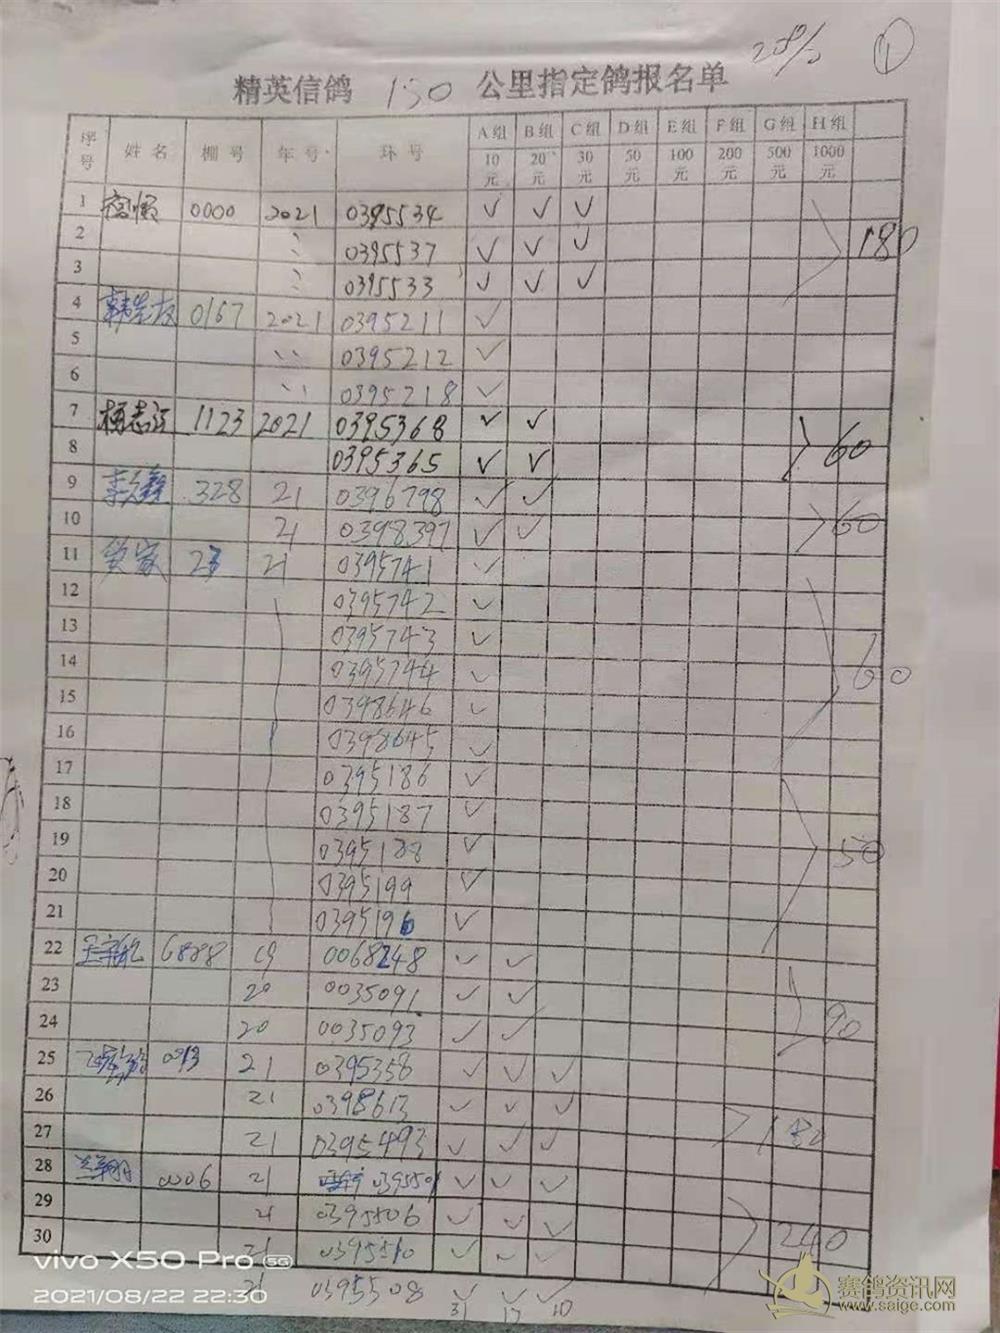 ①
精英信鸽 150 公里指定鸽报名单
序号 姓名 棚号 年号 环号 A组 B组 C组 D组 E组 F组 G组 H组
10元 20元 30元 50元 100元 200元 500元 1000元
1 0000 2021 0395534 ✓ ✓ ✓
2 0395537 ✓ ✓ ✓ 180
3 0395533 ✓ ✓ ✓
4 0167 2021 0395211 ✓
5 0395212 ✓
6 0395218 ✓
7 杨志江 1123 2021 0395368 ✓ ✓
8 0395365 ✓ ✓ 60
9 328 21 0396798 ✓ ✓
10 21 0398397 ✓ ✓ 60
11 23 21 0395741 ✓
12 0395742 ✓
13 0395743 ✓
14 0395744 ✓ 60
15 0398646 ✓
16 0398645 ✓
17 0395186 ✓
18 0395187 ✓
19 0395188 ✓ 50
20 0395199 ✓
21 0395196 ✓
22 6828 19 0068248 ✓ ✓
23 20 0035091 ✓ ✓
24 20 0035093 ✓ ✓ 90
25 0913 21 0395358 ✓ ✓ ✓
26 21 0398613 ✓ ✓ ✓
27 21 0395493 ✓ ✓ ✓ 180
28 兰翔 0006 21 0395501 ✓ ✓ ✓
29 21 0395506 ✓ ✓ ✓
30 21 0395510 ✓ ✓ ✓ 240
21 0395508 ✓ ✓ ✓
31 17 10
vivo X50 Pro 5G
2021/08/22 22:30
赛鸽资讯网
www.saige.com